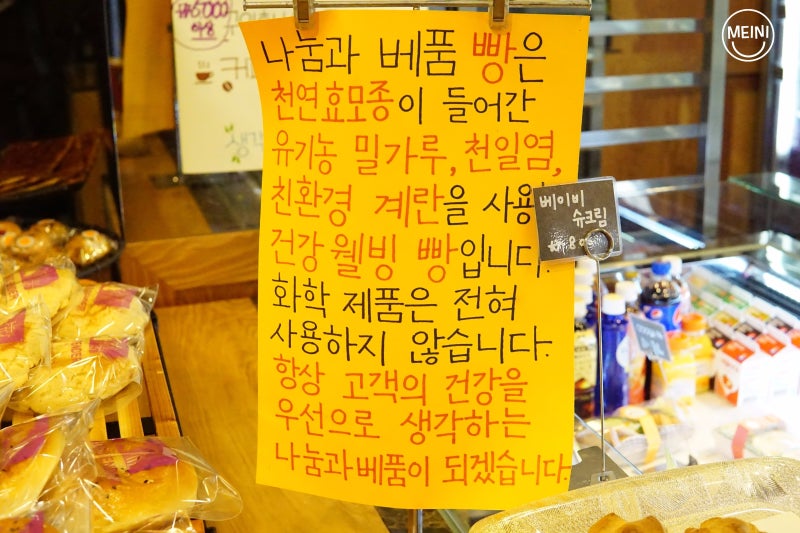 MEINI
나눔과 베품 빵은
천연효모종이 들어간
유기농 밀가루, 천일염,
친환경 계란을 사용
건강 웰빙 빵입니다.
화학 제품은 전혀
사용하지 않습니다.
항상 고객의 건강을
우선으로 생각하는
나눔과베품이 되겠습니다.
베이비
슈크림
생각